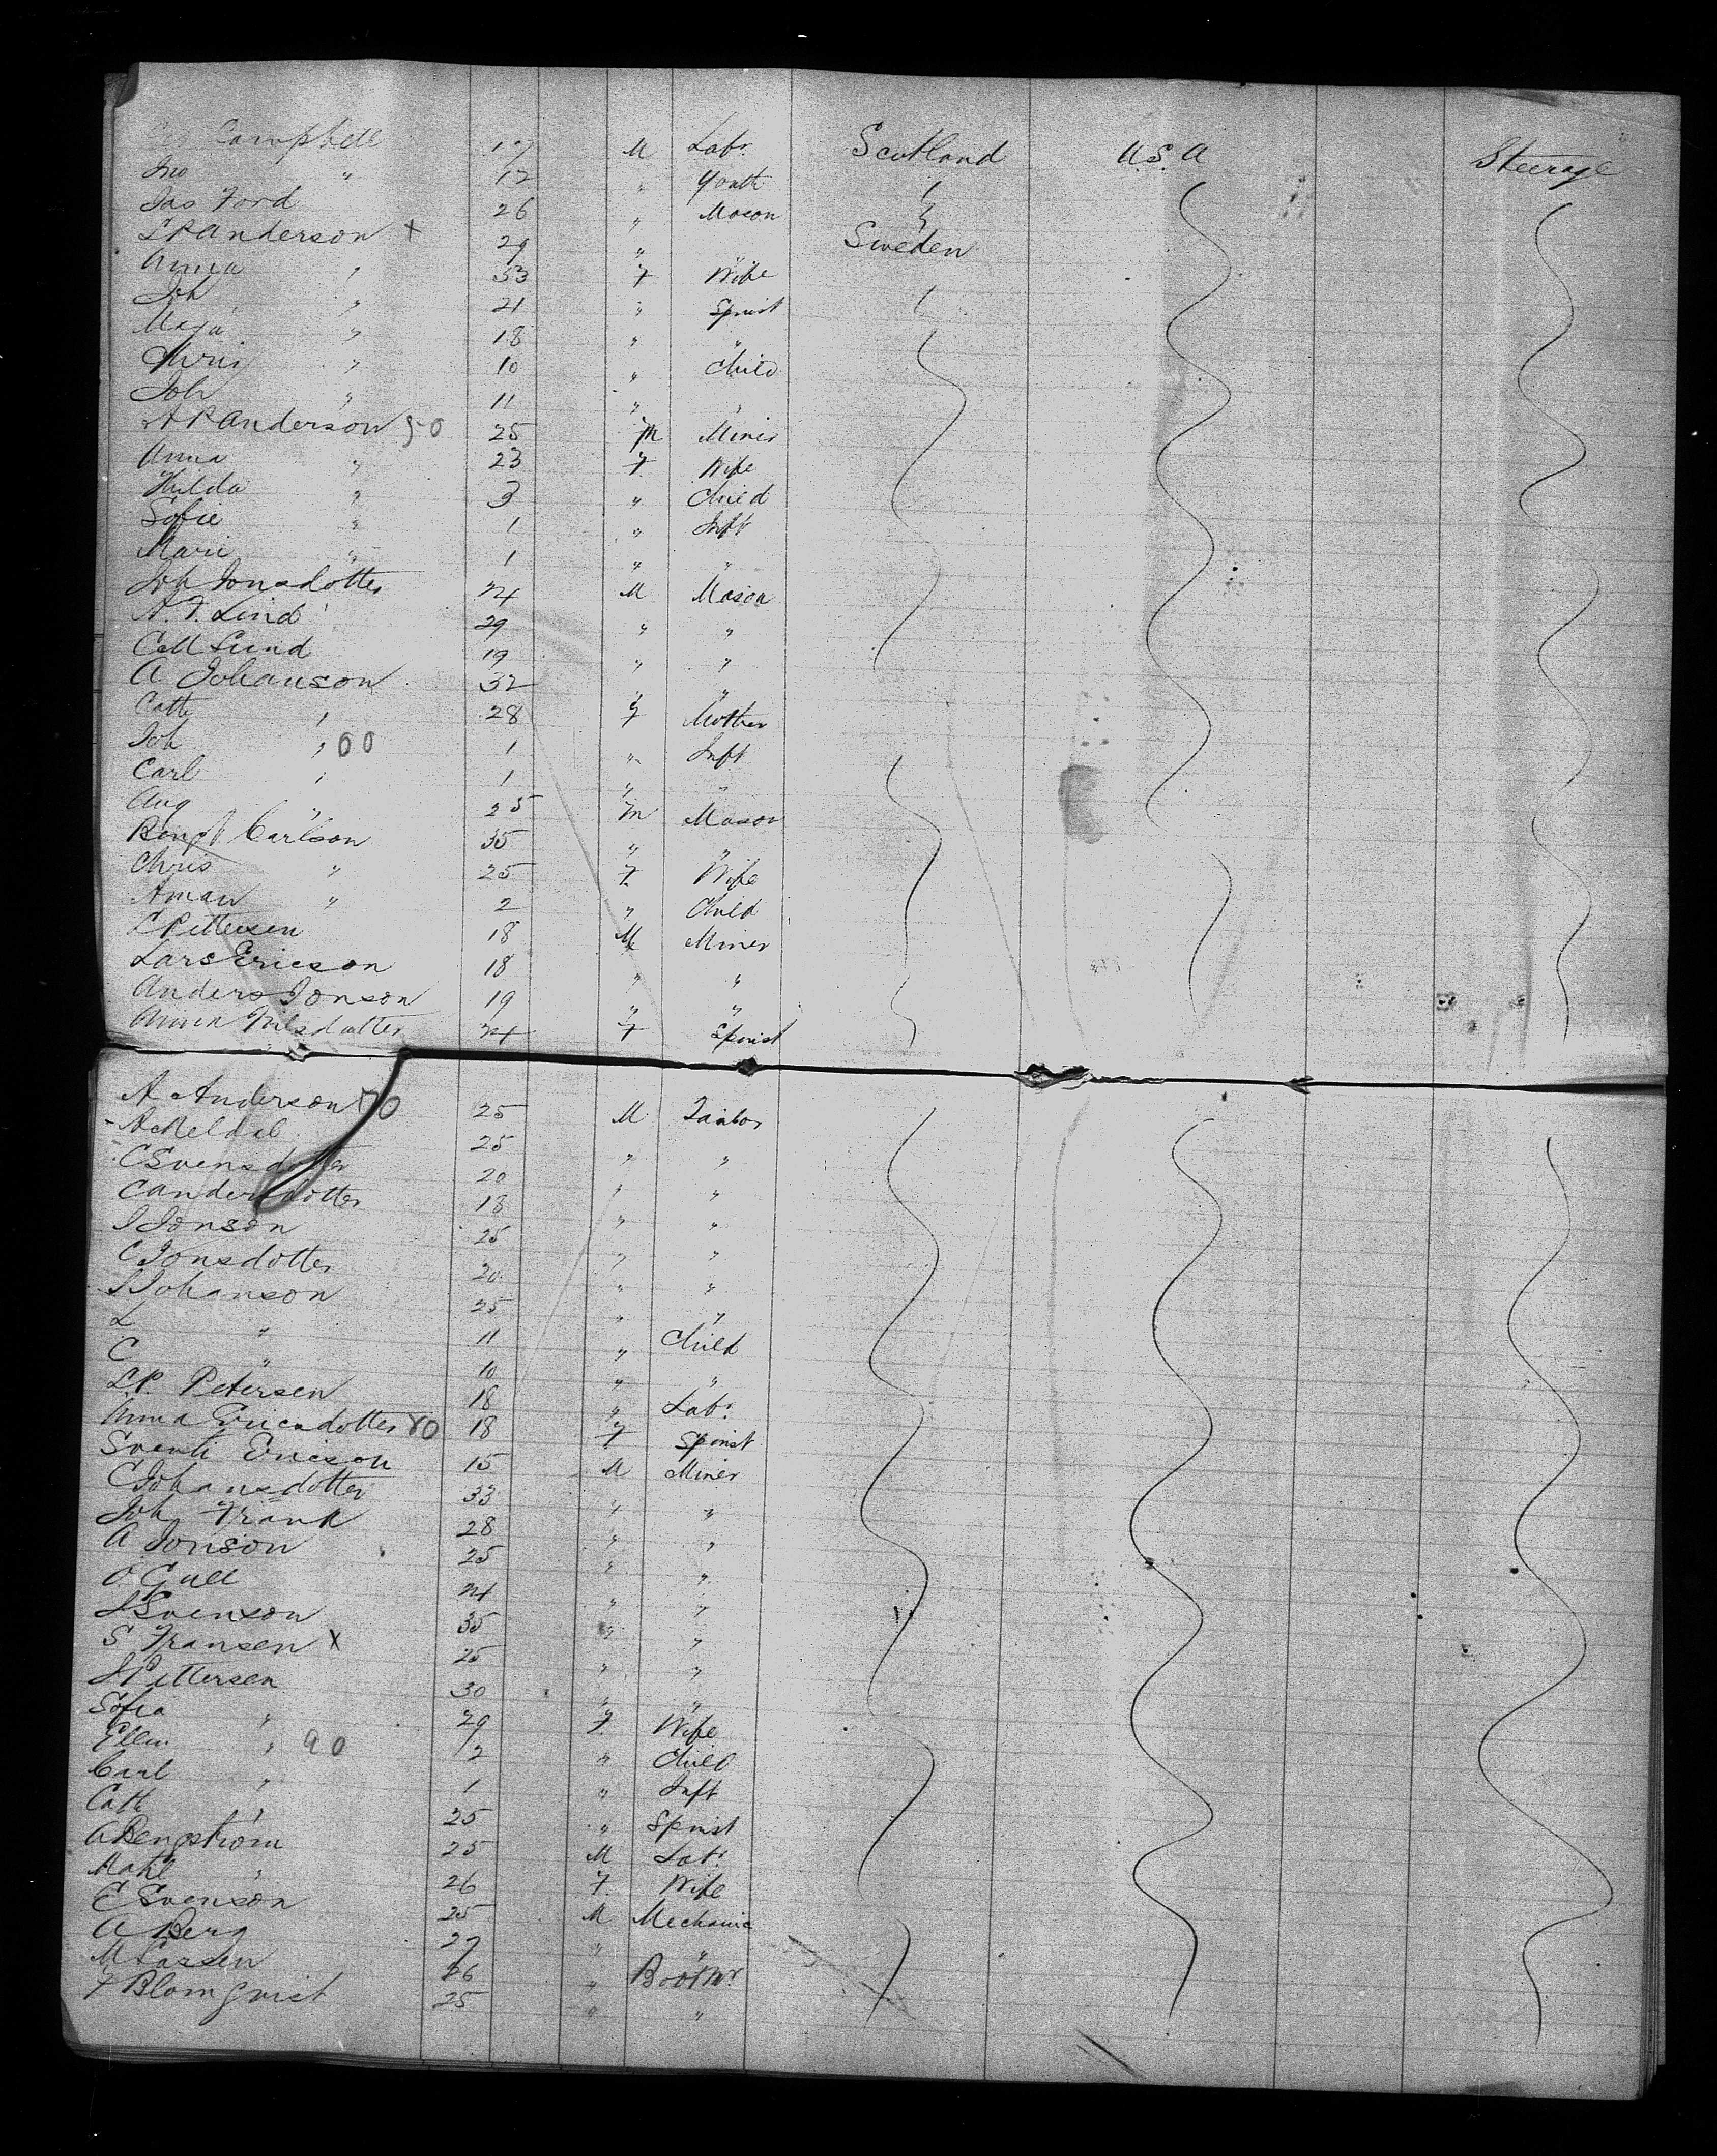 Campbell 17 M Labr. Scotland U.S.A Steerage
Jno " 12 " Youth
Jas Ford 26 " Mason
L P Anderson x 29 " " Sweden
Anna " 33 F Wife
Joh " 21 " Spinst
Maja " 18 " "
Chris " 10 " Child
Joh " 11 " "
A P Anderson 50 25 M Miner
Anna " 23 F Wife
Hilda " 3 " Child
Sofie " 1 " Inft
Mari " 1 " "
Joh Jonsdotter 24 M Mason
A. F. Lind 29 " "
C M Lund 19 " "
A Johanson 32 " "
Cath " 28 F Mother
Joh " 60 1 " Inft
Carl " 1 " "
Aug " 25 M Mason
Bengt Carlson 35 " "
Chris " 25 F Wife
Aman " 2 " Child
C Pettersen 18 M Miner
Lars Ericson 18 " "
Anders Jonson 19 " "
Nilsdotter 24 F Spinst
A Anderson 70 25 M Tailor
A Meldal 25 " "
C Svensdotter 20 " "
C Andersdotter 18 " "
J Jonson 25 " "
C Jonsdotter 20 " "
J Johanson 25 " "
L " 11 " Child
C " 10 " "
L. P. Petersen 18 " Labr.
Anna Ericsdotter 80 18 F Spinst
Ericson 15 M Miner
C Johansdotter 33 " "
Joh Frank 28 " "
A Jonson 25 " "
O Gull 24 " "
J Svenson 35 " "
S Fransen x 25 " "
J Pettersen 30 " "
Sofia " 29 F Wife
Ellen " 90 2 " Child
Carl " 1 " Inft
Cath " 25 " Spinst
A Bengstrom 25 M Labr.
" 26 F. Wife
E Svenson 25 M Mechanic
A Berg 27 " "
M Larsen 26 " Bootmr.
F Blomqvist 25 " "